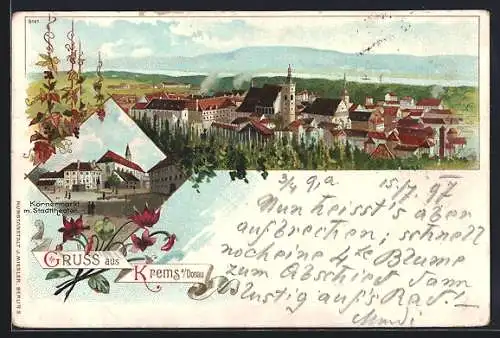 5147
Körnermarkt
m. Stadttheater
GRUSS aus
Krems a/Donau
KUNSTANSTALT J. MIESLER, BERLIN S.
15./7. 97
Nun heisst's aber
aufbrechen; schnell
noch eine 4te Blume
zum Abschied dann
lustig auf's Rad!